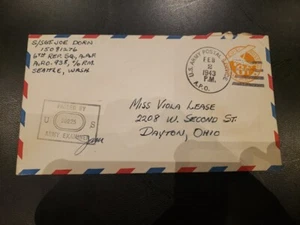 S/SGT. JOE DORN
15081276
5TH REP. SQ., A.A.F.
A.P.O. 938, % P.M.
SEATTLE, WASH.
U.S. ARMY POSTAL SERVICE
FEB
1943
P.M.
A.P.O.
PASSED BY
U S
ARMY EXAMINER
MISS VIOLA LEASE
2208 W. SECOND ST.
DAYTON, OHIO